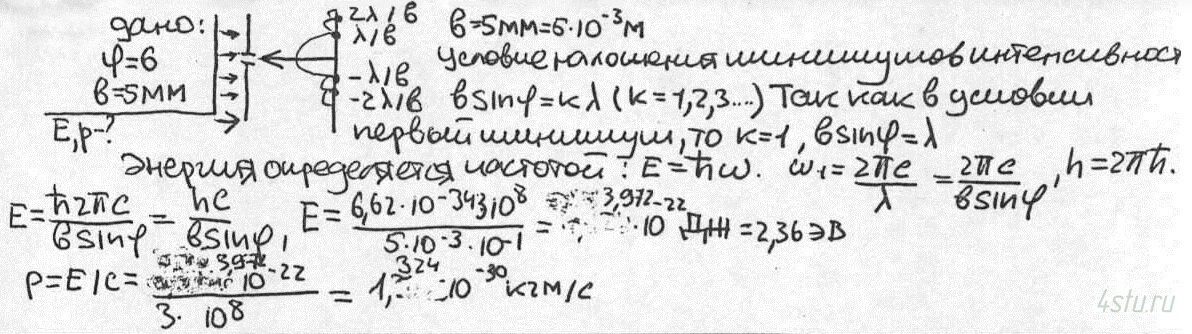 дано:
φ=6
в=5мм
E,p-?
2λ/в
λ/в
-λ/в
-2λ/в
в=5мм=5·10⁻³м
условие налошения минимумов интенсивност
вsinφ=кλ (к=1,2,3...) Так как в условии
первый минимум, то к=1, вsinφ=λ
Энергия определяется частотой: E=ħω. ω₁=2πc/λ=2πc/вsinφ, h=2πħ.
E=ħ2πc/вsinφ=hc/вsinφ, E=6,62·10⁻³⁴3·10⁸/5·10⁻³·10⁻¹= 3,972 ·10⁻²² Дж=2,36эВ
p=E/c= 3,972 10⁻²²/3·10⁸ = 1,324 10⁻³⁰ кгм/с
4stu.ru